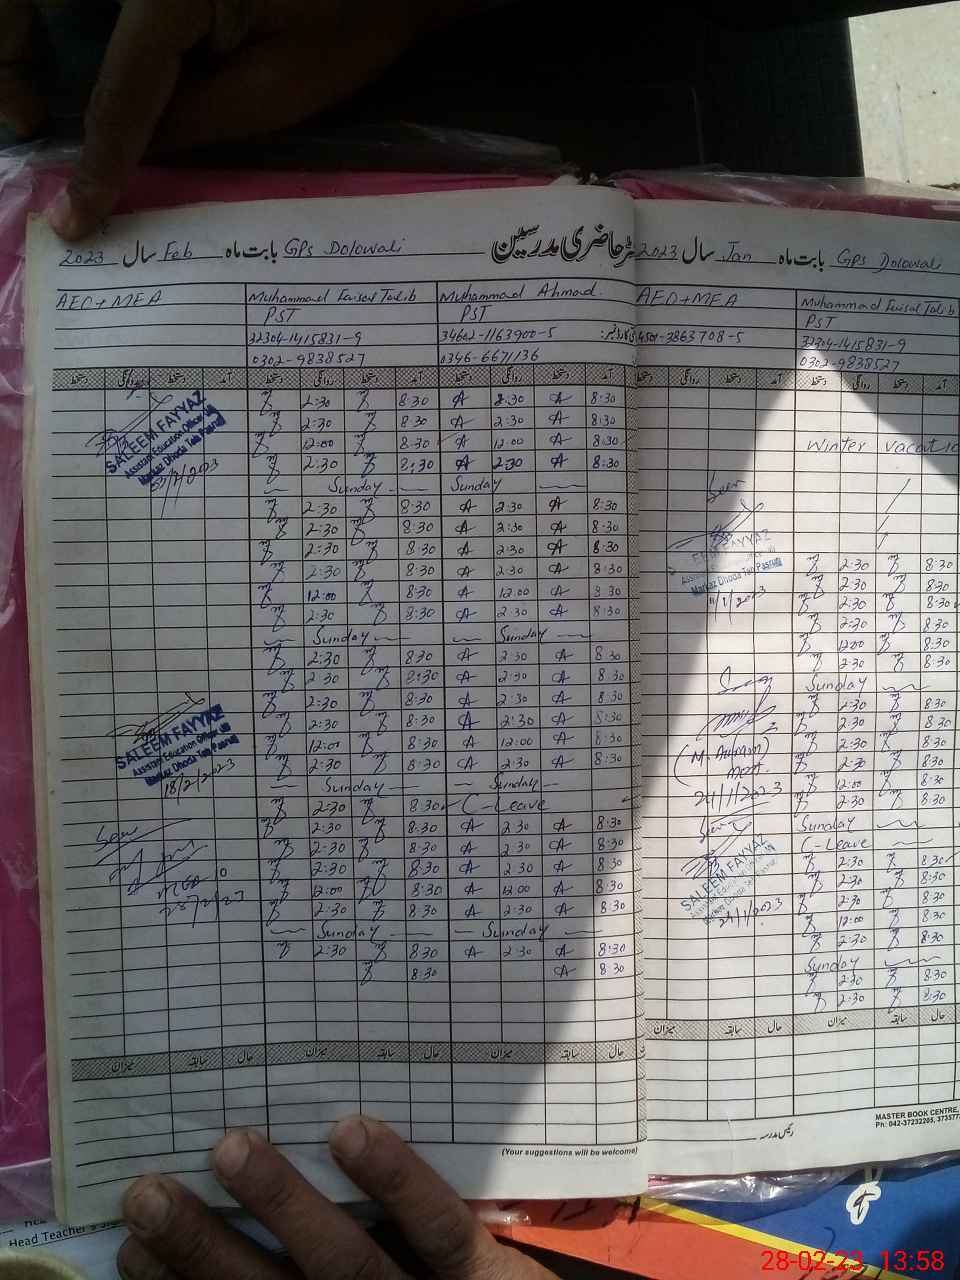 رجسٹر حاضری مدرسین GPS Dolowali بابت ماہ Feb سال 2023
AEO+MEA Muhammad Faisal Talib Muhammad Ahmad.
PST PST
32304-1415831-9 34602-1163900-5
0302-9838527 0346-6671136
دستخط روانگی دستخط آمد دستخط روانگی دستخط آمد
2:30 8:30 A 2:30 A 8:30
2:30 8:30 A 2:30 A 8:30
12:00 8:30 A 12:00 A 8:30
2:30 8:30 A 2:30 A 8:30
Sunday Sunday
2:30 8:30 A 2:30 A 8:30
2:30 8:30 A 2:30 A 8:30
2:30 8:30 A 2:30 A 8:30
2:30 8:30 A 2:30 A 8:30
12:00 8:30 A 12:00 A 8:30
2:30 8:30 A 2:30 A 8:30
Sunday Sunday
2:30 8:30 A 2:30 A 8:30
2:30 8:30 A 2:30 A 8:30
2:30 8:30 A 2:30 A 8:30
2:30 8:30 A 2:30 A 8:30
12:00 8:30 A 12:00 A 8:30
2:30 8:30 A 2:30 A 8:30
Sunday Sunday
2:30 8:30 C-Leave
2:30 8:30 A 2:30 A 8:30
2:30 8:30 A 2:30 A 8:30
2:30 8:30 A 2:30 A 8:30
12:00 8:30 A 12:00 A 8:30
2:30 8:30 A 2:30 A 8:30
Sunday Sunday
2:30 8:30 A 2:30 A 8:30
8:30 A 8:30
میزان سابقہ حال میزان سابقہ حال میزان سابقہ حال
(Your suggestions will be welcome)
SALEEM FAYYAZ
Assistant Education Officer
Markaz Dhoda Teh Pasrur
SALEEM FAYYAZ
Assistant Education Officer
Markaz Dhoda Teh Pasrur
18/2/2023
Seen
GPS Dolowali بابت ماہ Jan سال 2023
AEO+MEA Muhammad Faisal Talib
PST
4501-3863708-5 32304-1415831-9
0302-9838527
دستخط روانگی دستخط آمد
Winter vacatio
2:30 8:30
2:30 8:30
2:30 8:30
2:30 8:30
12:00 8:30
2:30 8:30
Sunday
2:30 8:30
2:30 8:30
2:30 8:30
2:30 8:30
12:00 8:30
2:30 8:30
Sunday
C-Leave
2:30 8:30
2:30 8:30
2:30 8:30
12:00 8:30
2:30 8:30
Sunday
2:30 8:30
2:30 8:30
میزان سابقہ حال میزان سابقہ حال
Seen
FAYYAZ
Markaz Dhoda Teh Pasrur
11/1/2023
MEA.
24/1/2023
Seen
SALEEM FAYYAZ
24/1/2023
MASTER BOOK CENTRE,
Ph: 042-37232205,
رئیس مدرسہ
Head Teacher's
28-02-23 13:58